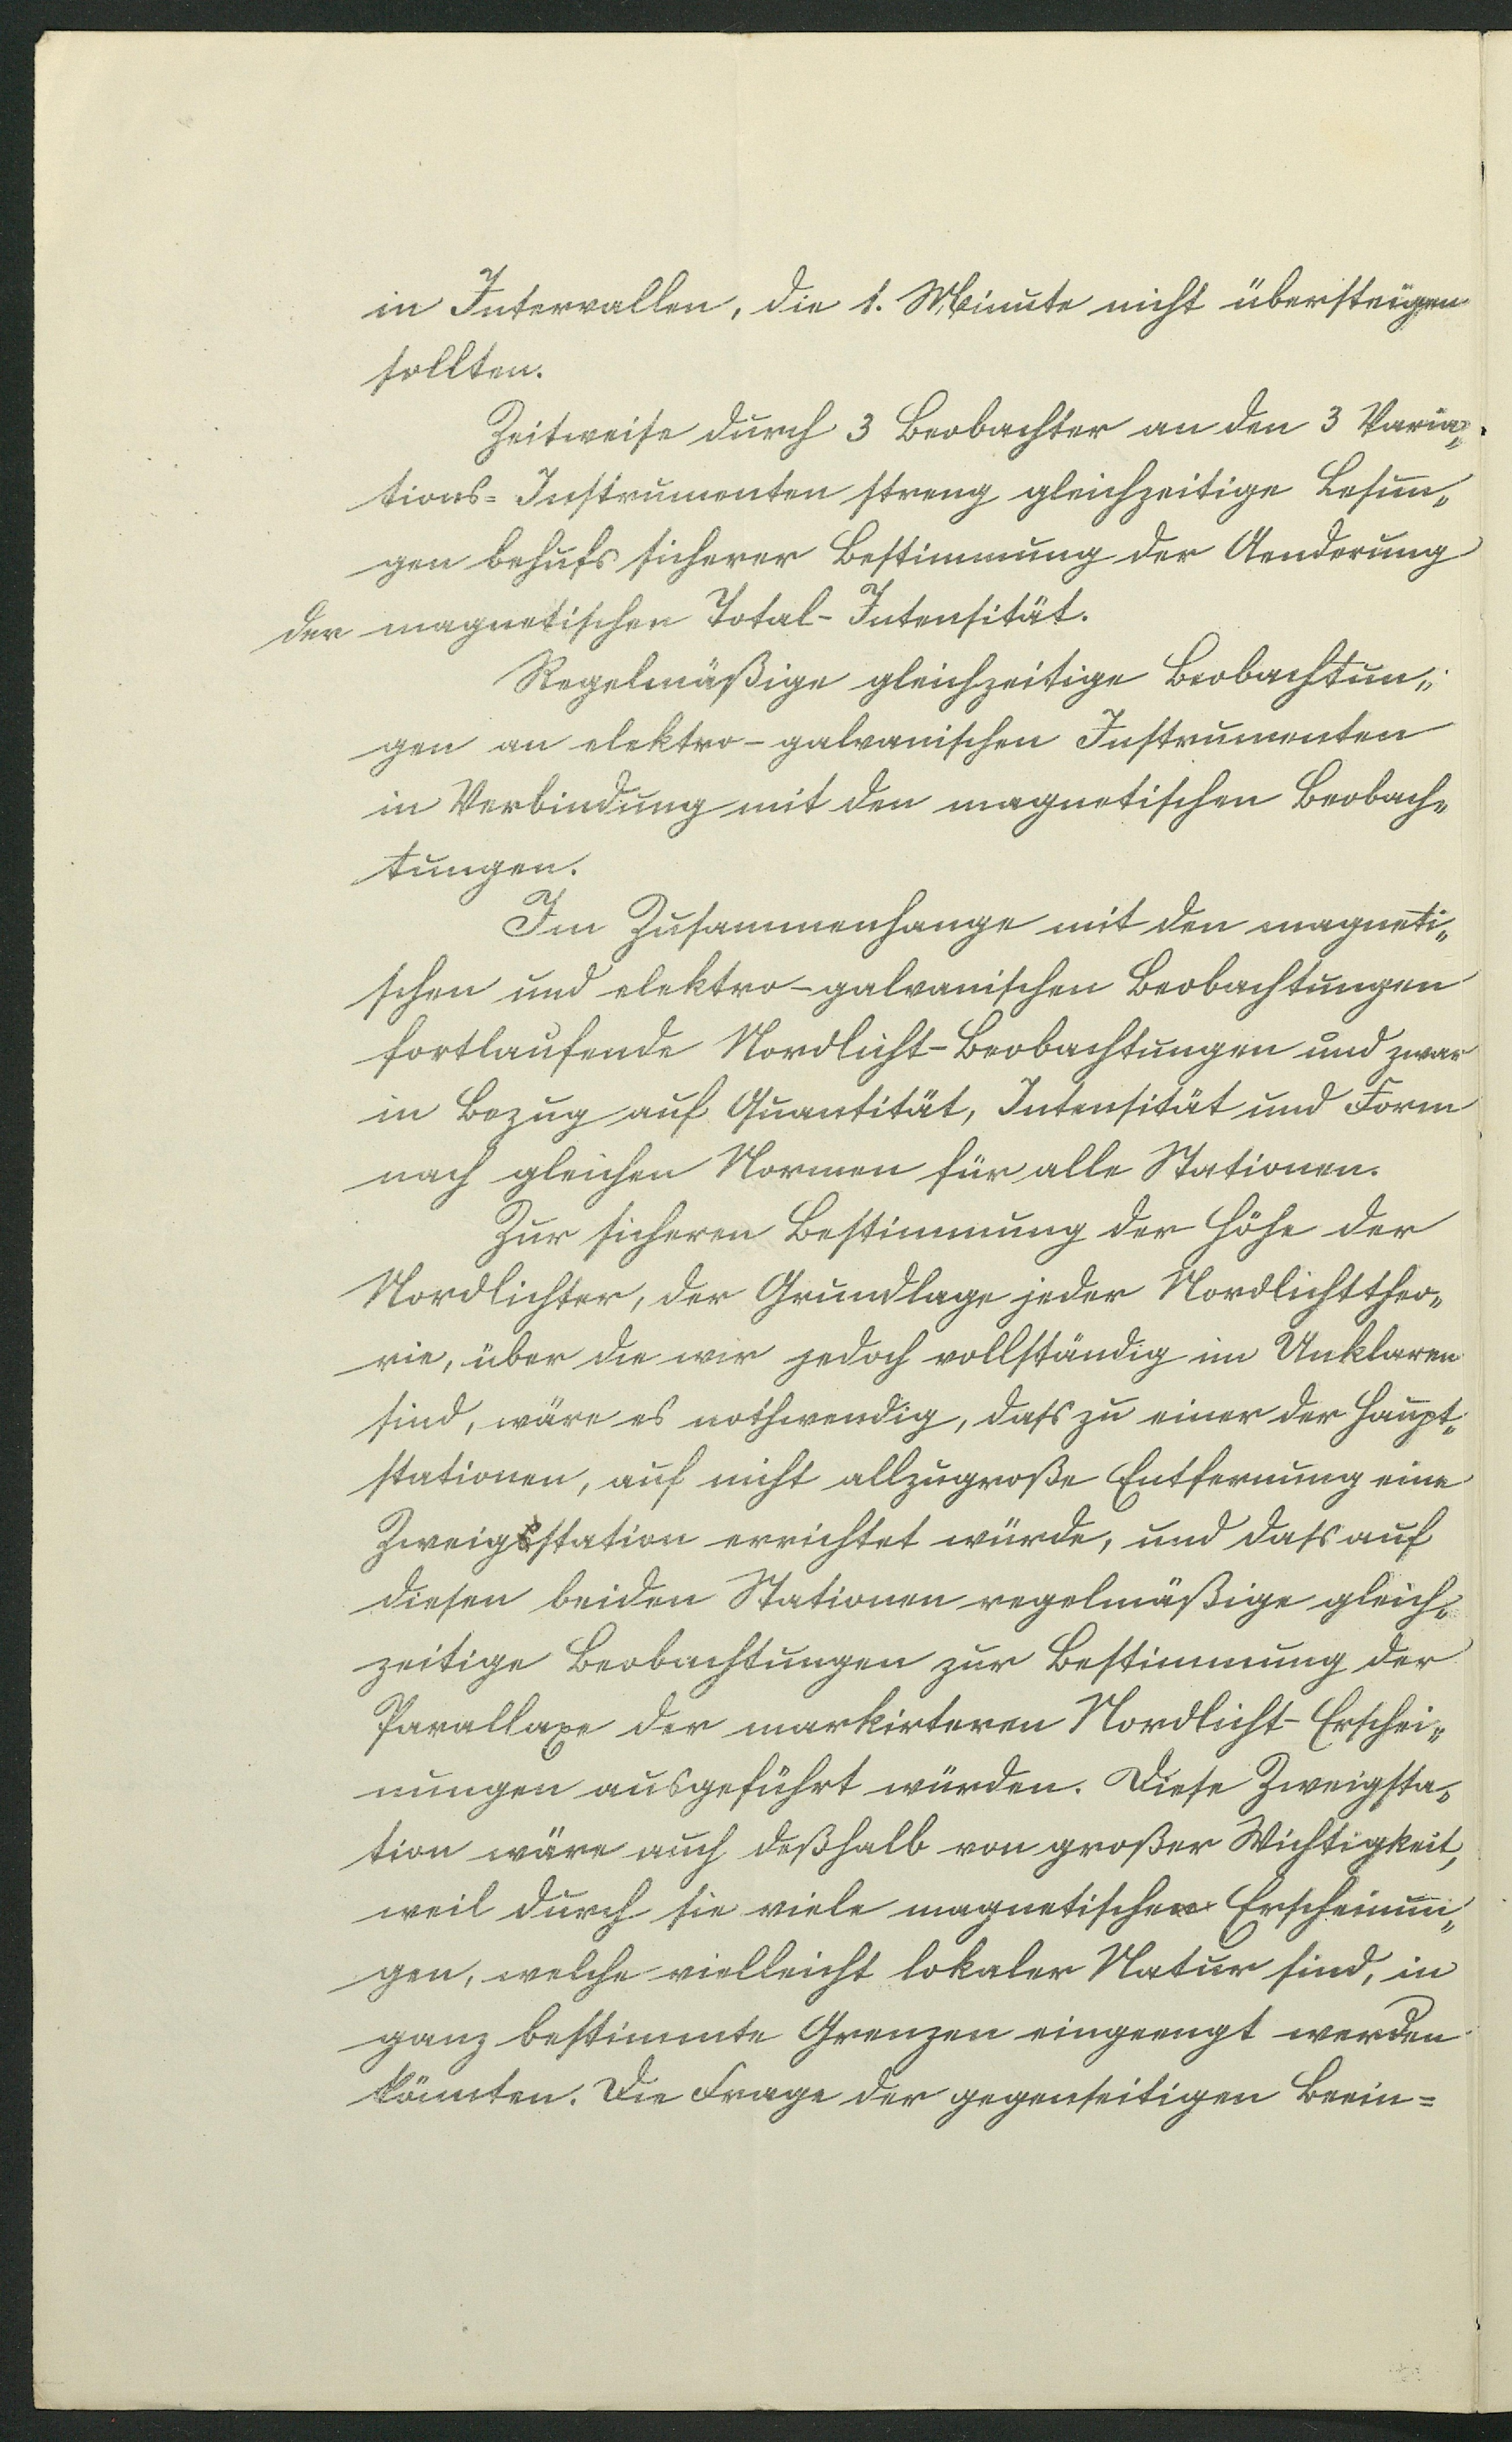 in Intervallen, die 1. Minute nicht übersteigen
sollten.
Zeitweise durch 3 Beobachter an den 3 Varia„
tions= Instrumenten streng gleichzeitige Lesun„
gen behufs sicherer Bestimmung der Aenderung
der magnetischen Total-Intensität.
Regelmäßige gleichzeitige Beobachtun„
gen an elektro-galvanischen Instrumenten
in Verbindung mit den magnetischen Beobach„
tungen.
Im Zusammenhange mit den magneti„
schen und elektro-galvanischen Beobachtungen
fortlaufende Nordlicht-Beobachtungen und zwar
in Bezug auf Quantität, Intensität und Form
nach gleichen Normen für alle Stationen.
Zur sicheren Bestimmung der Höhe der
Nordlichter, der Grundlage jeder Nordlichttheo„
rie, über die wir jedoch vollständig im Unklaren
sind, wäre es nothwendig, dass zu einer der Haupt„
stationen, auf nicht allzugroße Entfernung eine
Zweigstation errichtet würde, und dass auf
diesen beiden Stationen regelmäßige gleich„
zeitige Beobachtungen zur Bestimmung der
Parallaxe der markirteren Nordlicht-Erschei„
nungen ausgeführt würden. Diese Zweigsta„
tion wäre auch deßhalb von großer Wichtigkeit,
weil durch sie viele magnetische Erscheinun„
gen, welche vielleicht lokaler Natur sind, in
ganz bestimmte Grenzen eingeengt werden
könnten. Die Frage der gegenseitigen Beein=